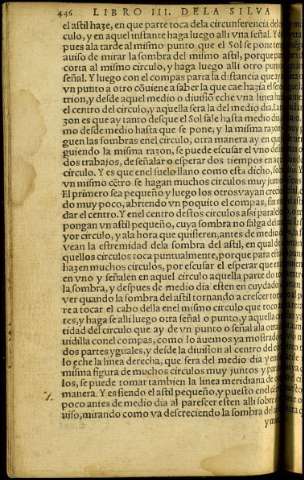 446 LIBRO III. DELA SILVA
el astil haze, en que parte toca dela circunferencia del
culo, y en aquel instante haga luego alli vna señal. Y d
pues ala tarde al mismo punto que el Sol se pone ten
auiso de mirar la sombra del mismo astil, porque pas
corta al mismo circulo, y haga luego alli otro pun
señal. Y luego con el compas parta la distancia que ay
vn punto a otro cõuiene a saber la que cae hazia el se
trion, y desde aquel medio diuiso eche vna linea ha
el centro del circulo, y aquella sera la de medio dia. La
zon es que ay tanto desque el Sol sale hasta medio di
mo desde medio hasta que se pone, y la misma razon
guen las sombras enel circulo, otra manera ay en qu
guiendo la misma razon, se puede escusar el vno de
dos trabajos, de señalar o esperar dos tiempos en a
circulo. Y es que enel suelo llano como esta dicho, so
vn mismo cẽtro se hagan muchos circulos muy jun
El primero sea pequeño y luego los otros vayan cre
do muy poco, abriendo vn poquito el compas, sin
dar el centro. Y enel centro destos circulos assi para
pongan vn astil pequeño, cuya sombra no salga de
yor circulo, y ala hora que quisieren, antes de medio
vean la estremidad dela sombra del astil, en qual d
quellos circulos toca puntualmente, porque para est
hazen muchos circulos, por escusar el esperar que en
en vno y señalen en aquel circulo aquella parte do
la sombra, y despues de medio dia esten en cuydado
ver quando la sombra del astil tornando a crescer to
rea tocar el cabo della enel mismo circulo que toc
tes, y haga se alli luego otra señal o punto, y aquella
ridad del circulo que ay de vn punto o señal ala otra
uidilla conel compas, como lo auemos ya mostrado
dos partes yguales, y desde la diuision al centro del
lo eche la linea derecha, que sera del medio dia, y en
misma figura de muchos circulos muy juntos y pa
los, se puede tomar tambien la linea meridiana de
manera. Y es siendo el astil pequeño, y puesto enel cen
poco antes de medio dia al parescer esten alli sobre
uiso, mirando como va descreciendo la sombra del a